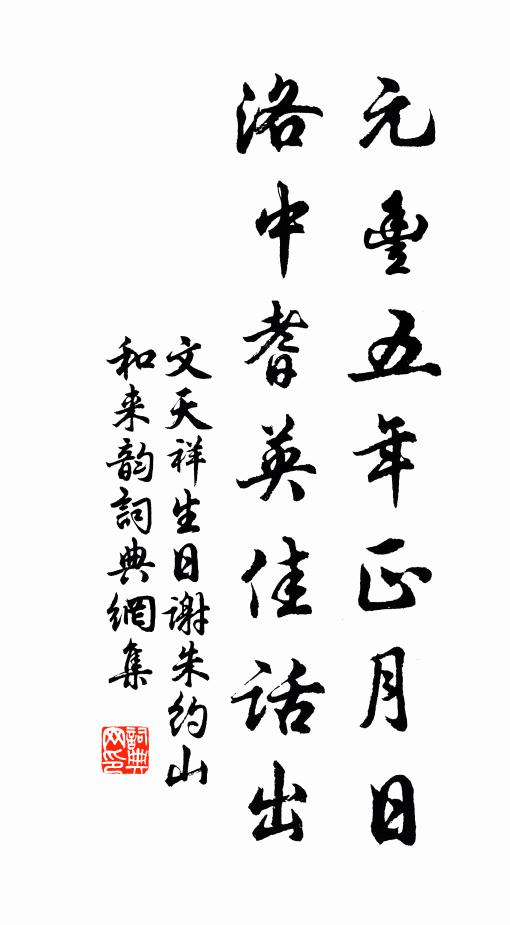 元豐五年正月日
洛中耆英佳話出
文天祥生日謝朱約山
和来韵詞典網集
詞典网印